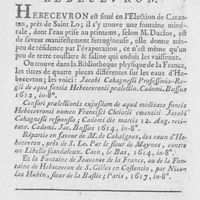 HEBECEVRON.
HEBECEVRON est situé en l'Election de Caran-
tan, près de Saint Lo; il y trouve une fontaine miné-
rale, dont l'eau prise au printems, selon M. Duclos, est
de saveur manifestement ferrugineuse, elle donne très-
peu de résidence par l'évaporation, & ce n'est même qu'un
peu de terre rousse & saline qui enduit les vaisseaux.
On trouve dans la Bibliotheque physique de la France,
les titres de quatre pieces différentes sur les eaux d'He-
becevron; les voici: Jacobi Cahagnesii Professoris Re-
gii de aqua fontis Hebecevronii prælectio. Cadomi. Bussus
1612, in-8°.
Censori prælectionis cujusdam de aquâ medicatâ fontis
Hebecevronii nomen Francisci Chicotii ementiti Jacobi
Cahagnesii responsio; Cadomi die martis 12. Aug. reci-
tata. Cadomi. Jac. Bussus 1614, in-8°.
Répartie en faveur de M. de Cahaignes, des eaux d'He-
becevron, près de S. Lo. Par le sieur de Maynes, contre
un Libelle scandaleux. Caen, le Bas, 1614, in-8°.
Et la Fontaine de Jouvence de la France, ou de la Fon-
taine de Hebecevron de S. Gilles en Costentin, par Nico-
las Hubin, sieur de la Bastie; Paris, 1617, in-8°.